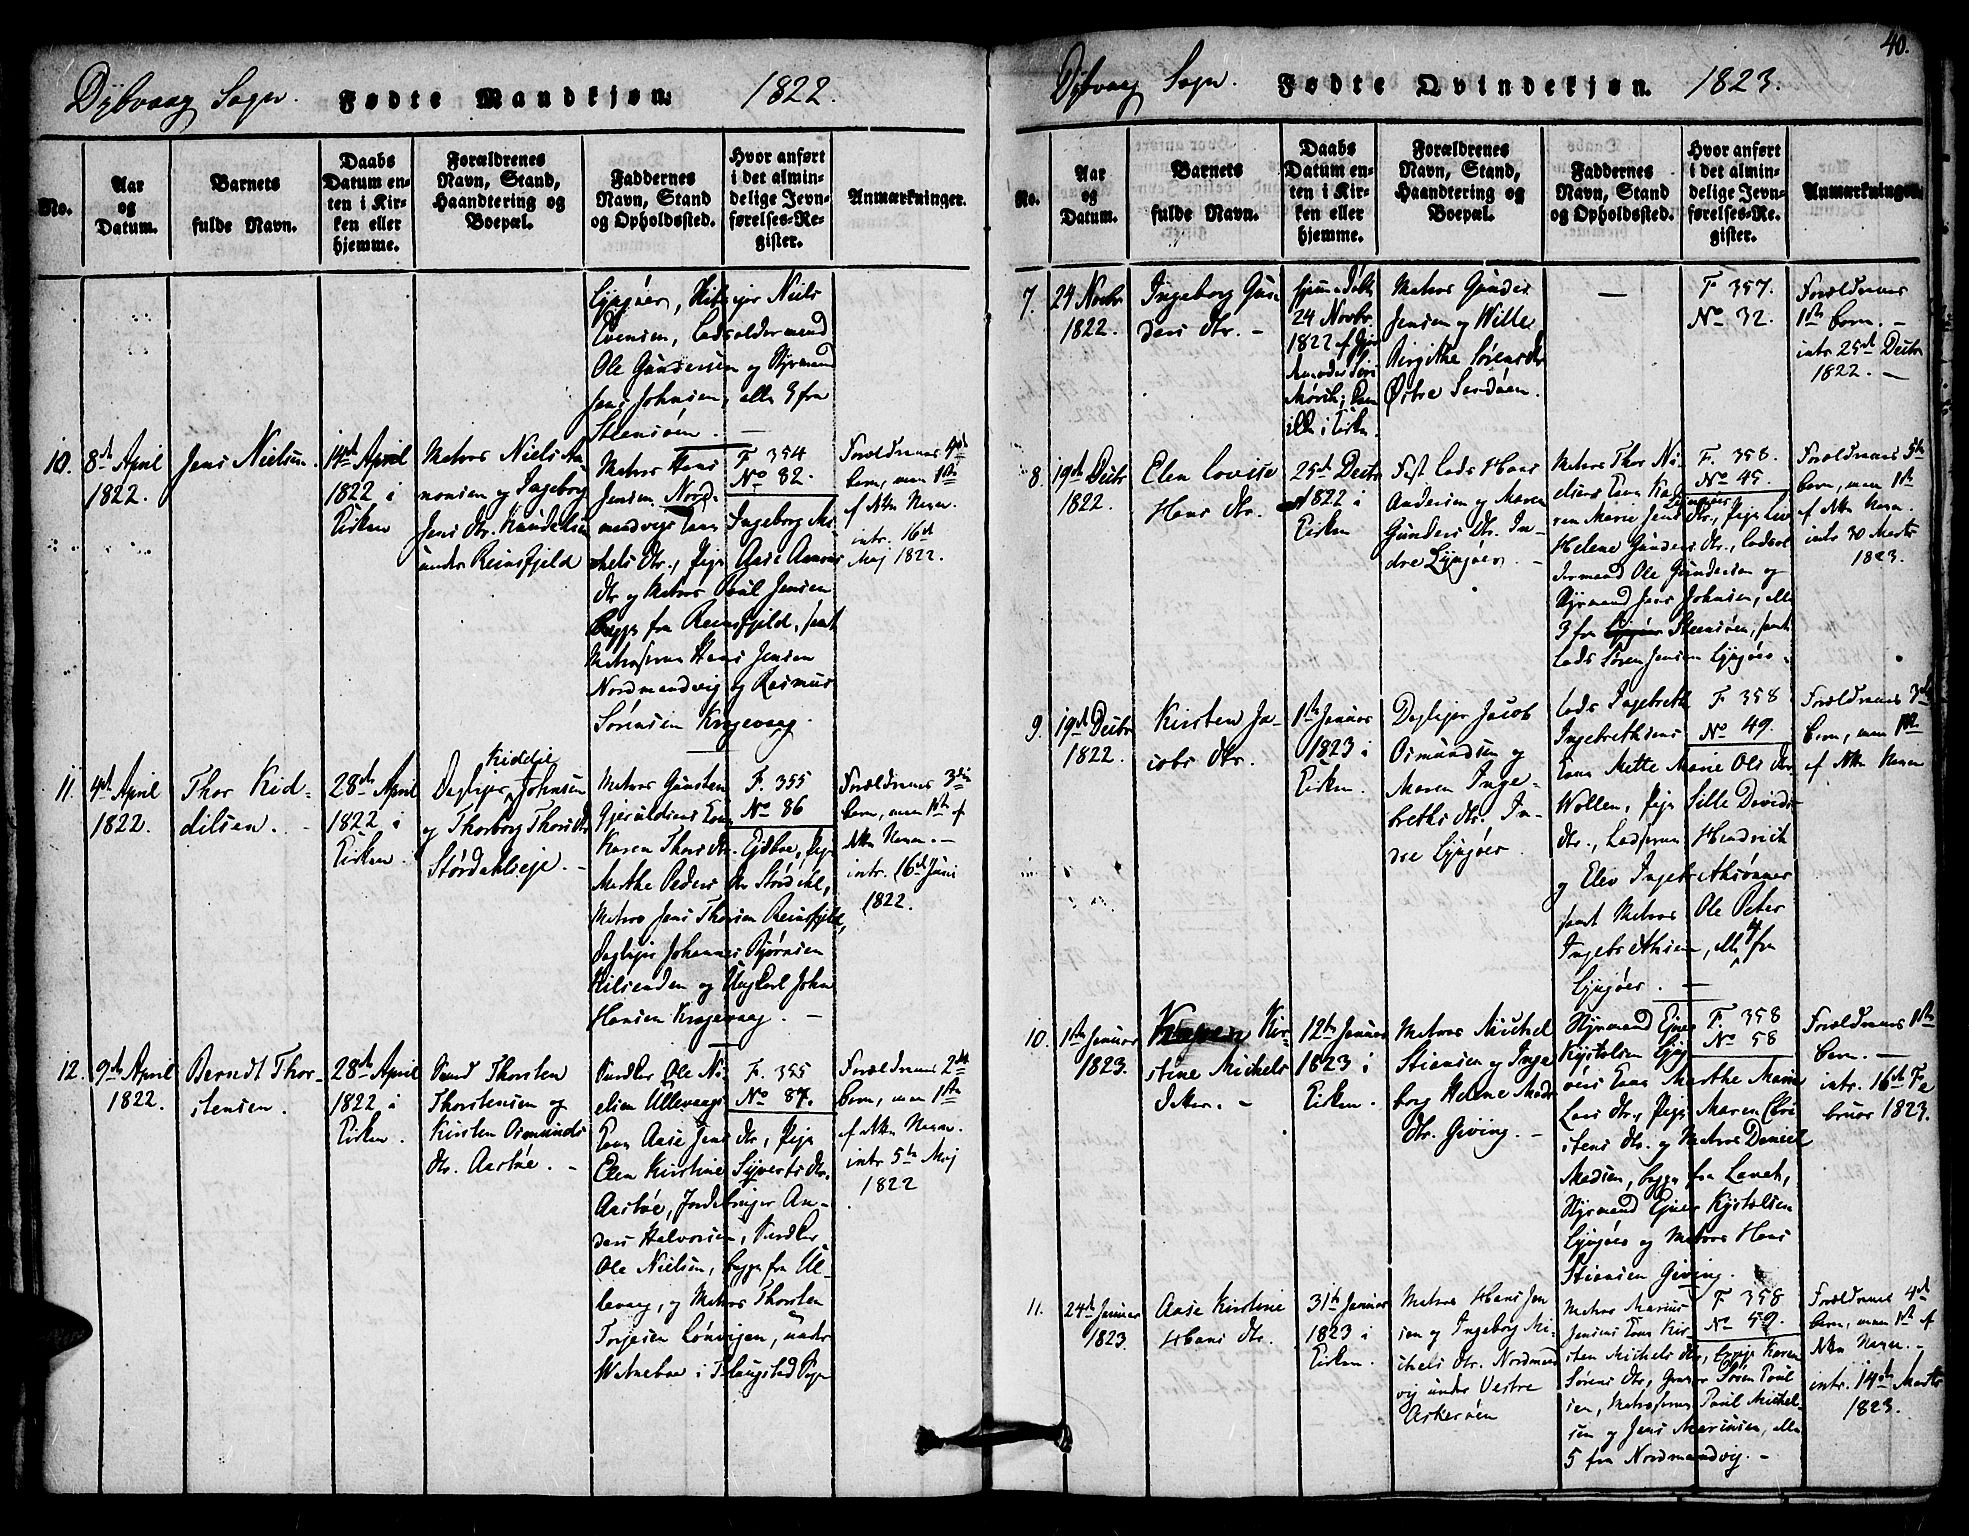 Dybvaag Sogn. Fødte Mandkjøn. 1822.
No.
Aar
og
Datum.
Barnets
fulde Navn.
Daabs
Datum en-
ten i Kir-
ken eller
hjemme.
Forældrenes
Navn, Stand,
Haandtering og
Boepæl.
Faddernes
Navn, Stand
og Opholdssted.
Hvor anført
i det almin-
delige Jevn-
førelses-Re-
gister.
Anmærkninger.
Lyngøer, Niels
Evensen, Lodsoldermand
Ole Gundersen og Styrmand
Jens Johnsen, alle 3 fra
Steensøen. —
10.
8de April
1822.
Jens Nielsen.
14de April
1822 i
Kirken
Matros Niels Aa-
nonsen og Ingeborg
Jens dtr.
under Reinsfjeld
Matros Hans
Jensen Nord-
mandvigs Kone
Ingeborg Mi-
chels dtr., Pige Aase Aanons
dtr og Matros Poul Jensen
begge fra Reinsfjeld, samt
Matroserne Hans Jensen
Nordmandvig og Rasmus
Sørensen Kragevaag.
F. 354
No 82.
Forældrenes 4de
Barn, men 1ste
af Navn.
intr. 16de
Maj 1822.
11.
4de April
1822.
Thor Kid-
dilsen. —
28de April
1822 i
Kirken.
Kiddil
Daglejer Johnsen
og Thorborg Thors dtr
Størdahlseje. —
Matros Gunsten
Gjeruldsens Kone
Karen Thors dtr. Eidboe, Pige
Marthe Peders dtr Stordahl,
Matros Jens Thorsen Reinsfjeld,
Daglejer Johannes Bjørnsen
og Ungkarl John
Hansen Kragevaag. —
F. 355
No 86
Forældrenes 3die
Barn, men 1ste af
Navn. —
intr. 16de Juni
1822.
12.
9de April
1822.
Berndt Thor-
stensen.
28de April
1822 i
Kirken.
Thorsten
Thorstensen og
Kirsten Osmunds
dtr. Aastøe. —
Ole Ni-
elsen Ullevaags
Kone Aase Jens dtr, Pige
Elen Kirstine Syverts dtr.
Aastøe, An-
ders Halvorsen,
Ole Nielsen, begge fra Ul-
levaag, og Matros Thorsten
Terjesen Lønvigen, under
i Flangstad Sogn
F. 355
No 87.
Forældrenes 2det
Barn, men 1ste
af Navn.
intr. 5te Maj
1822
40.
Dybvaag Sogn. Fødte Qvindekjøn. 1823.
No.
Aar
og
Datum.
Barnets
fulde Navn.
Daabs
Datum en-
ten i Kir-
ken eller
hjemme.
Forældrenes
Navn, Stand,
Haandtering og
Boepæl.
Faddernes
Navn, Stand
og Opholdssted.
Hvor anført
i det almin-
delige Jevn-
førelses-Re-
gister.
Anmærkninger.
7.
24 Novbr
1822.
Ingeborg Gun-
ders dtr. —
Hjemmedøbt
24 Novbr.
1822 af
i Kirken.
Matros Gunder
Jensen og Wille
Birgithe Sørens dtr
Østre Sandøen.
—
F 357.
No 32.
Forældrenes
1ste Barn. —
intr 25de Decbr
1822. —
8.
19de Decbr
1822.
Elen Lovise
Hans dtr.
25de Decbr
1822 i
Kirken
Fast Lods Hans
Andersen og Maren
Gunders dtr. In-
dre Lyngøer. —
Matros Thor Ni-
elsens Kone Ka-
ren Marie Jens dtr., Pige
Helene Gunders dtr., Lodsol-
dermand Ole Gundersen og
Styrmand Jens Johnsen, alle
3 fra Steensøen, samt
Lods Søren Jensen Lyngøer.
F. 358.
No 45.
Forældrenes 5te
Barn, men 1ste
af Navn.
intr 30 Marts
1823.
9.
19de Decbr
1822.
Kirsten Ja-
cobs dtr.
1ste Januar
1823 i
Kirken.
Daglejer Jacob
Osmundsen og
Maren Inge-
breths dtr. In-
dre Lyngøer.
Lods Ingebreth
Ingebrethsens
Kone Mette Marie Ols dtr
Wollen, Pige Sille Davids-
dtr., Lodserne Hendrich
og Elev Ingebrethsønner
samt Matros Ole Peter
Ingebrethsen, alle 4 fra
Lyngøer. —
F 358
No 49.
Forældrenes 3die
Barn, men 1ste
af Navn
10.
1ste Januar
1823.
Karen Kir-
stine Michels
dater. —
12te Januar
1823 i
Kirken.
Matros Michel
Stiansen og Inge-
borg Helene Mads
dtr. Giving. —
Styrmand Ejner
Kystolsen Lyng-
øers Kone Marthe Marie
Lars dtr., Pige Maren Chri-
stens dtr. og Matros Daniel
Madsen, begge fra Lanet,
Styrmand Ejner Kystolsen
Lyngøer og Matros Hans
Stiansen Giving.
F. 358
No 58
Forældrenes 1ste
Barn. —
intr. 16de Fe-
bruar 1823.
11.
24de Januar
1823.
Aase Kirstine
Hans dtr.
31te Januar
1823 i
Kirken.
Matros Hans Jen-
sen og Ingeborg Mi-
chels dtr. Nordmand-
vig under Vestre
Askerøen
Matros Marius
Jensens Kone Kir-
sten Michels dtr, Pige Karen
Sørens dtr, Søren Poul
sen, Matroserne Poul Michel-
sen og Jens Mariusen, alle
5 fra Nordmandvig. —
F 358
No 59.
Forældrenes 4de
Barn, men 1ste af
Navn. —
intr. 14de Marts
1823.